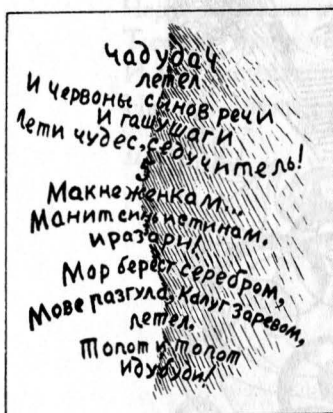 Чадудач
летел
И червоны сынов речи
И гашушаги
Лети чудес, седучитель!
5
Макнеженкам...
Манит синь истинам.
и разари!
Мор берёст серебром,
Мове разгула, Калуг Заревом,
летел.
Топот и топот
идубуди!